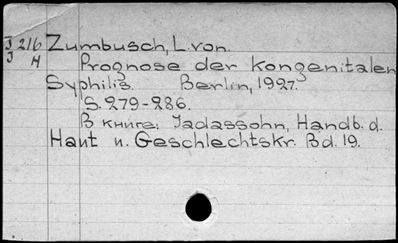 I 216 Zumbusch, L. von.
I H Prognose der kongenitalen
Syphilis. Berlin, 1927.
S. 279-286.
В книге: Jadassohn, Handb. d.
Haut u. Geschlechtskr. Bd. 19.